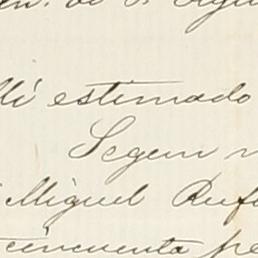 Mi estimado
Segun
Miguel Ruf
cincuenta pe